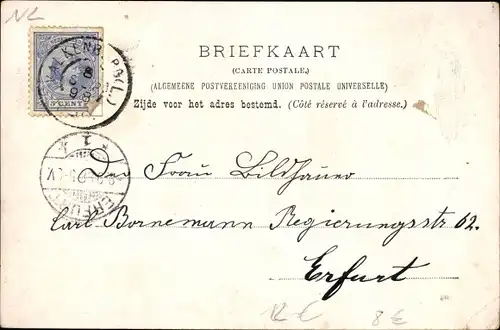 NL
VALKENBURG (L)
8
98
5 CENT
BRIEFKAART
(CARTE POSTALE.)
(ALGEMEENE POSTVEREENIGING UNION POSTALE UNIVERSELLE)
Zijde voor het adres bestemd. (Côté réservé à l'adresse.)
* 1 k
ERFURT
Der Frau Bildhauer
Carl Bornemann Regierungsstr 62.
Erfurt
12 €
8 €